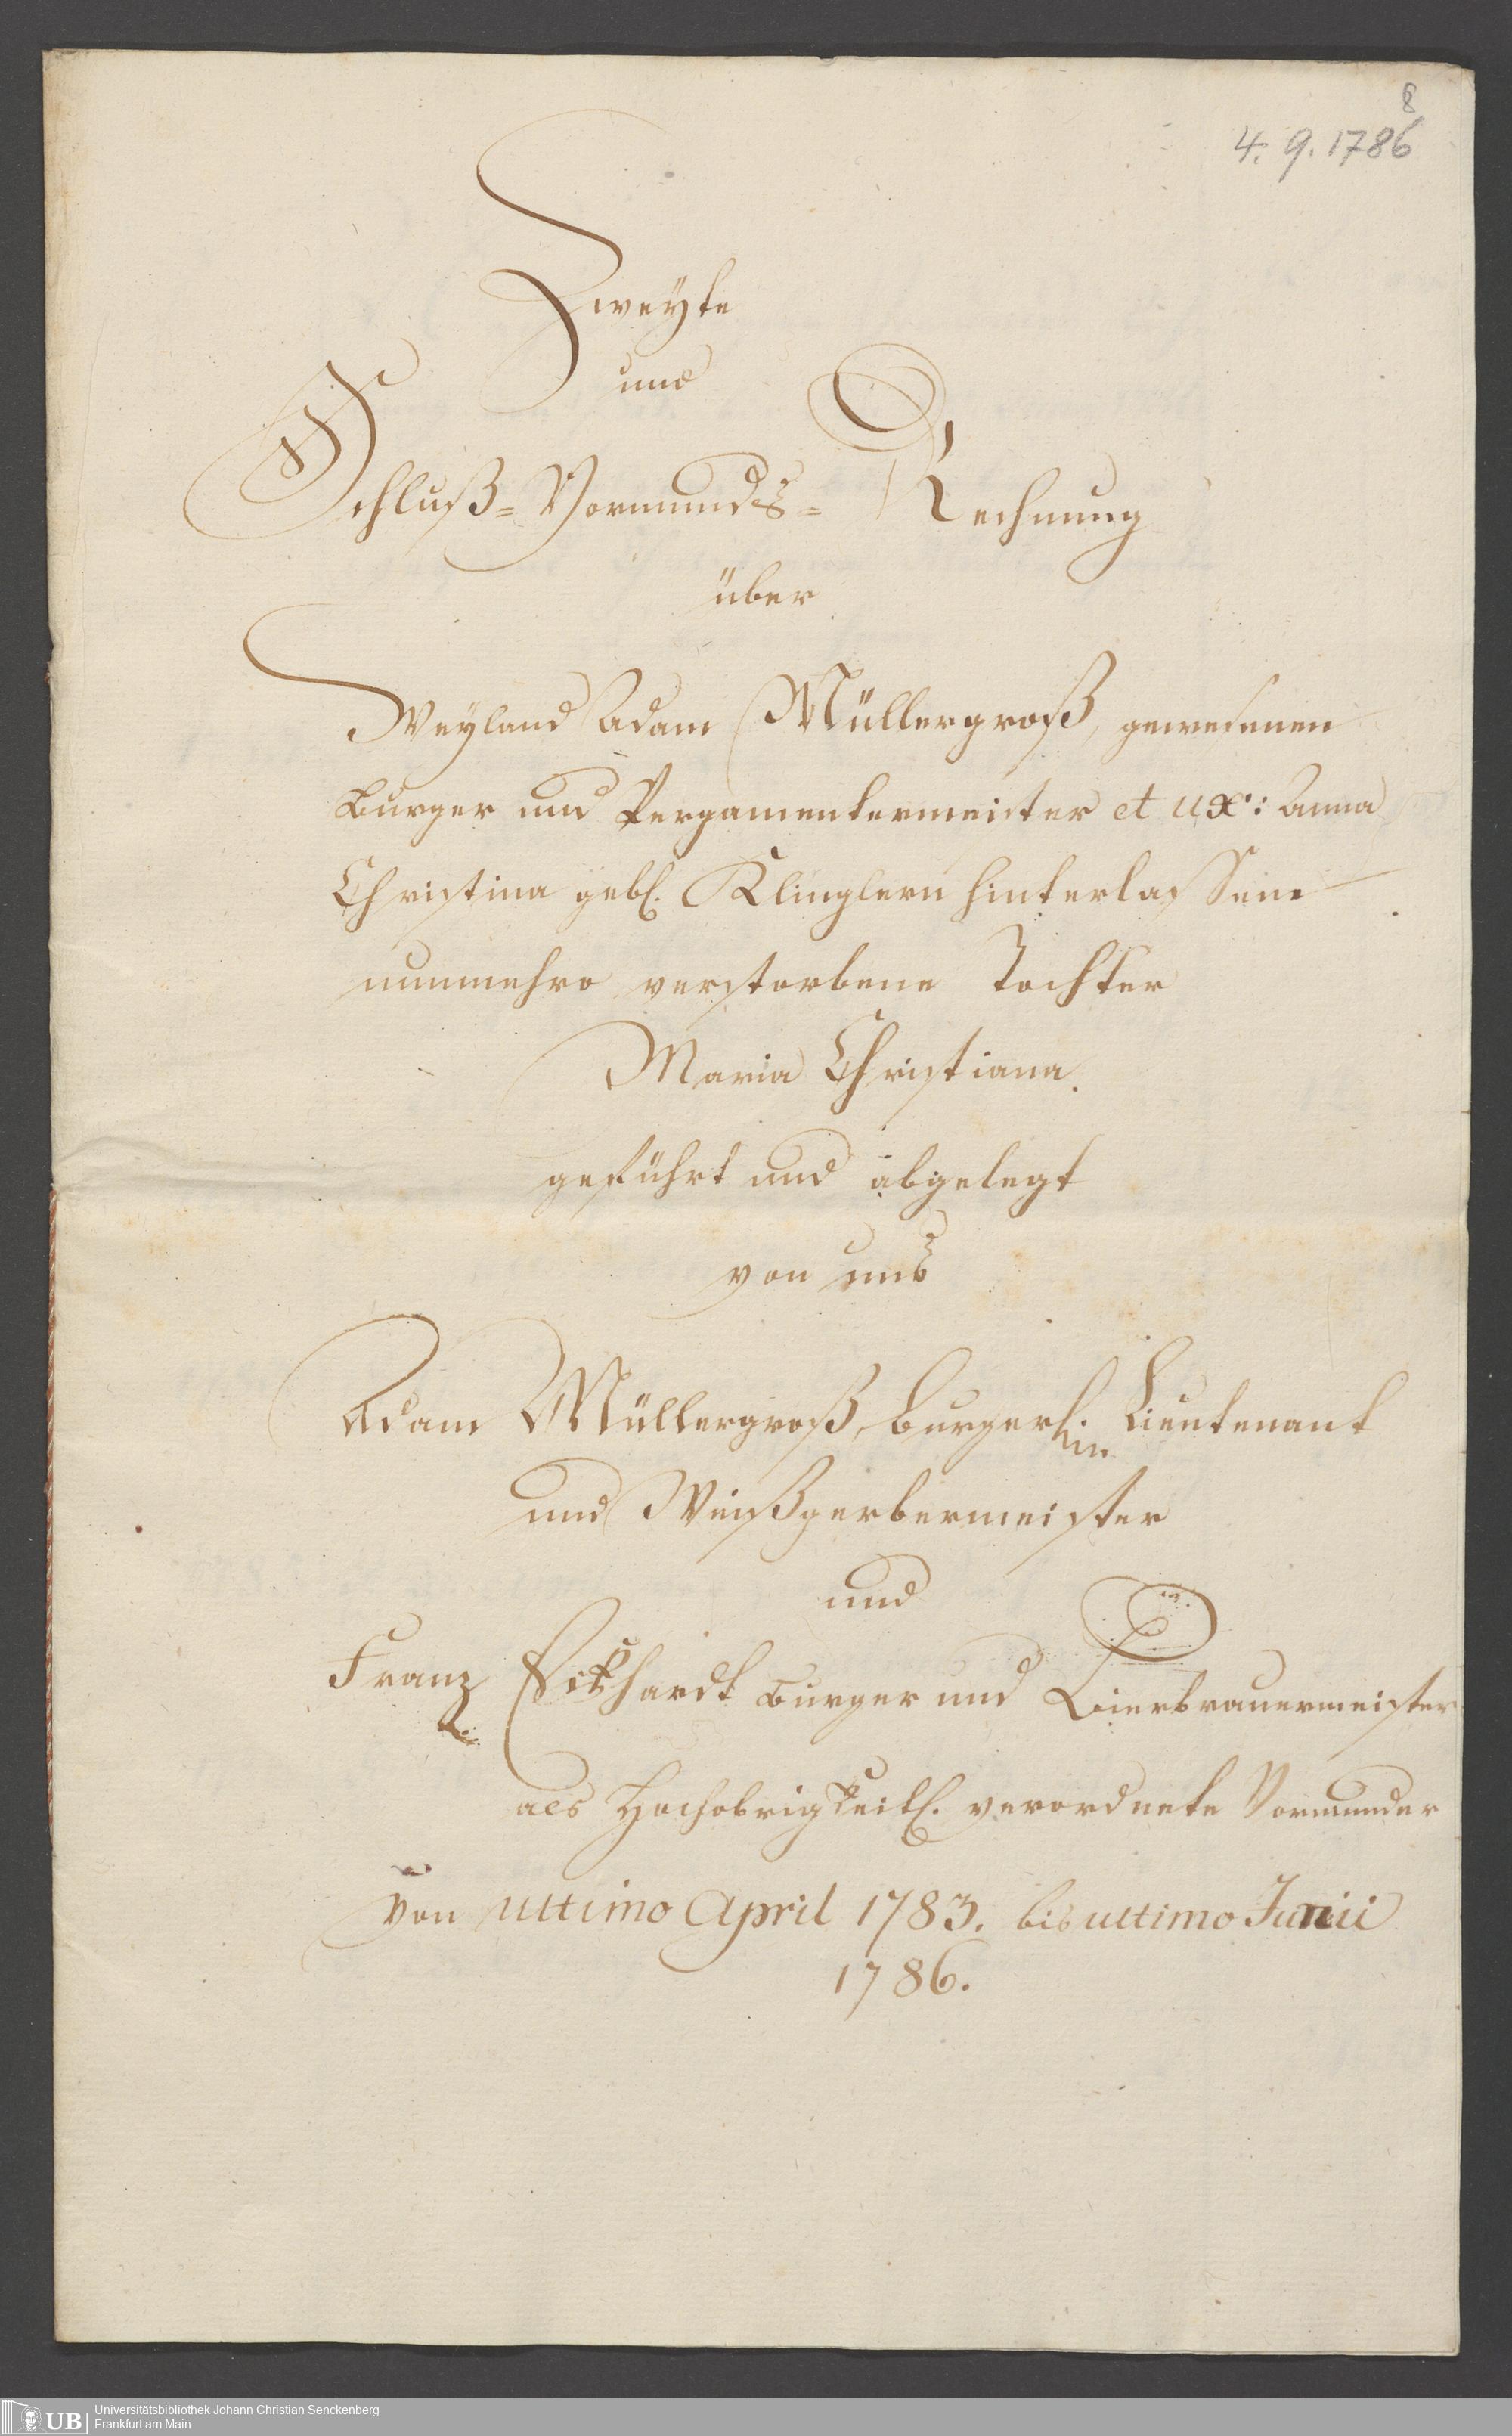 8
4. 9. 1786
Zweyte
und
Schluß= Vormunds= Rechnung
über
Weyland Adam Müllergroß, gewesenen
Burger und Pergamentermeister et ux: Anna
Christina gebl. Klinglern hinterlassene
nunmehro verstorbene Tochter
Maria Christiana
geführt und abgelegt
von uns
Adam Müllergroß, burgerl. Lieutenant
und Weißgerbermeister
und
Franz Eckhardt Burger und Bierbrauermeister
als Hochobrigkeitl. verordnete Vormunder
von ultimo April 1783. bis ultimo Junii
1786.
UB
Universitätsbibliothek Johann Christian Senckenberg
Frankfurt am Main